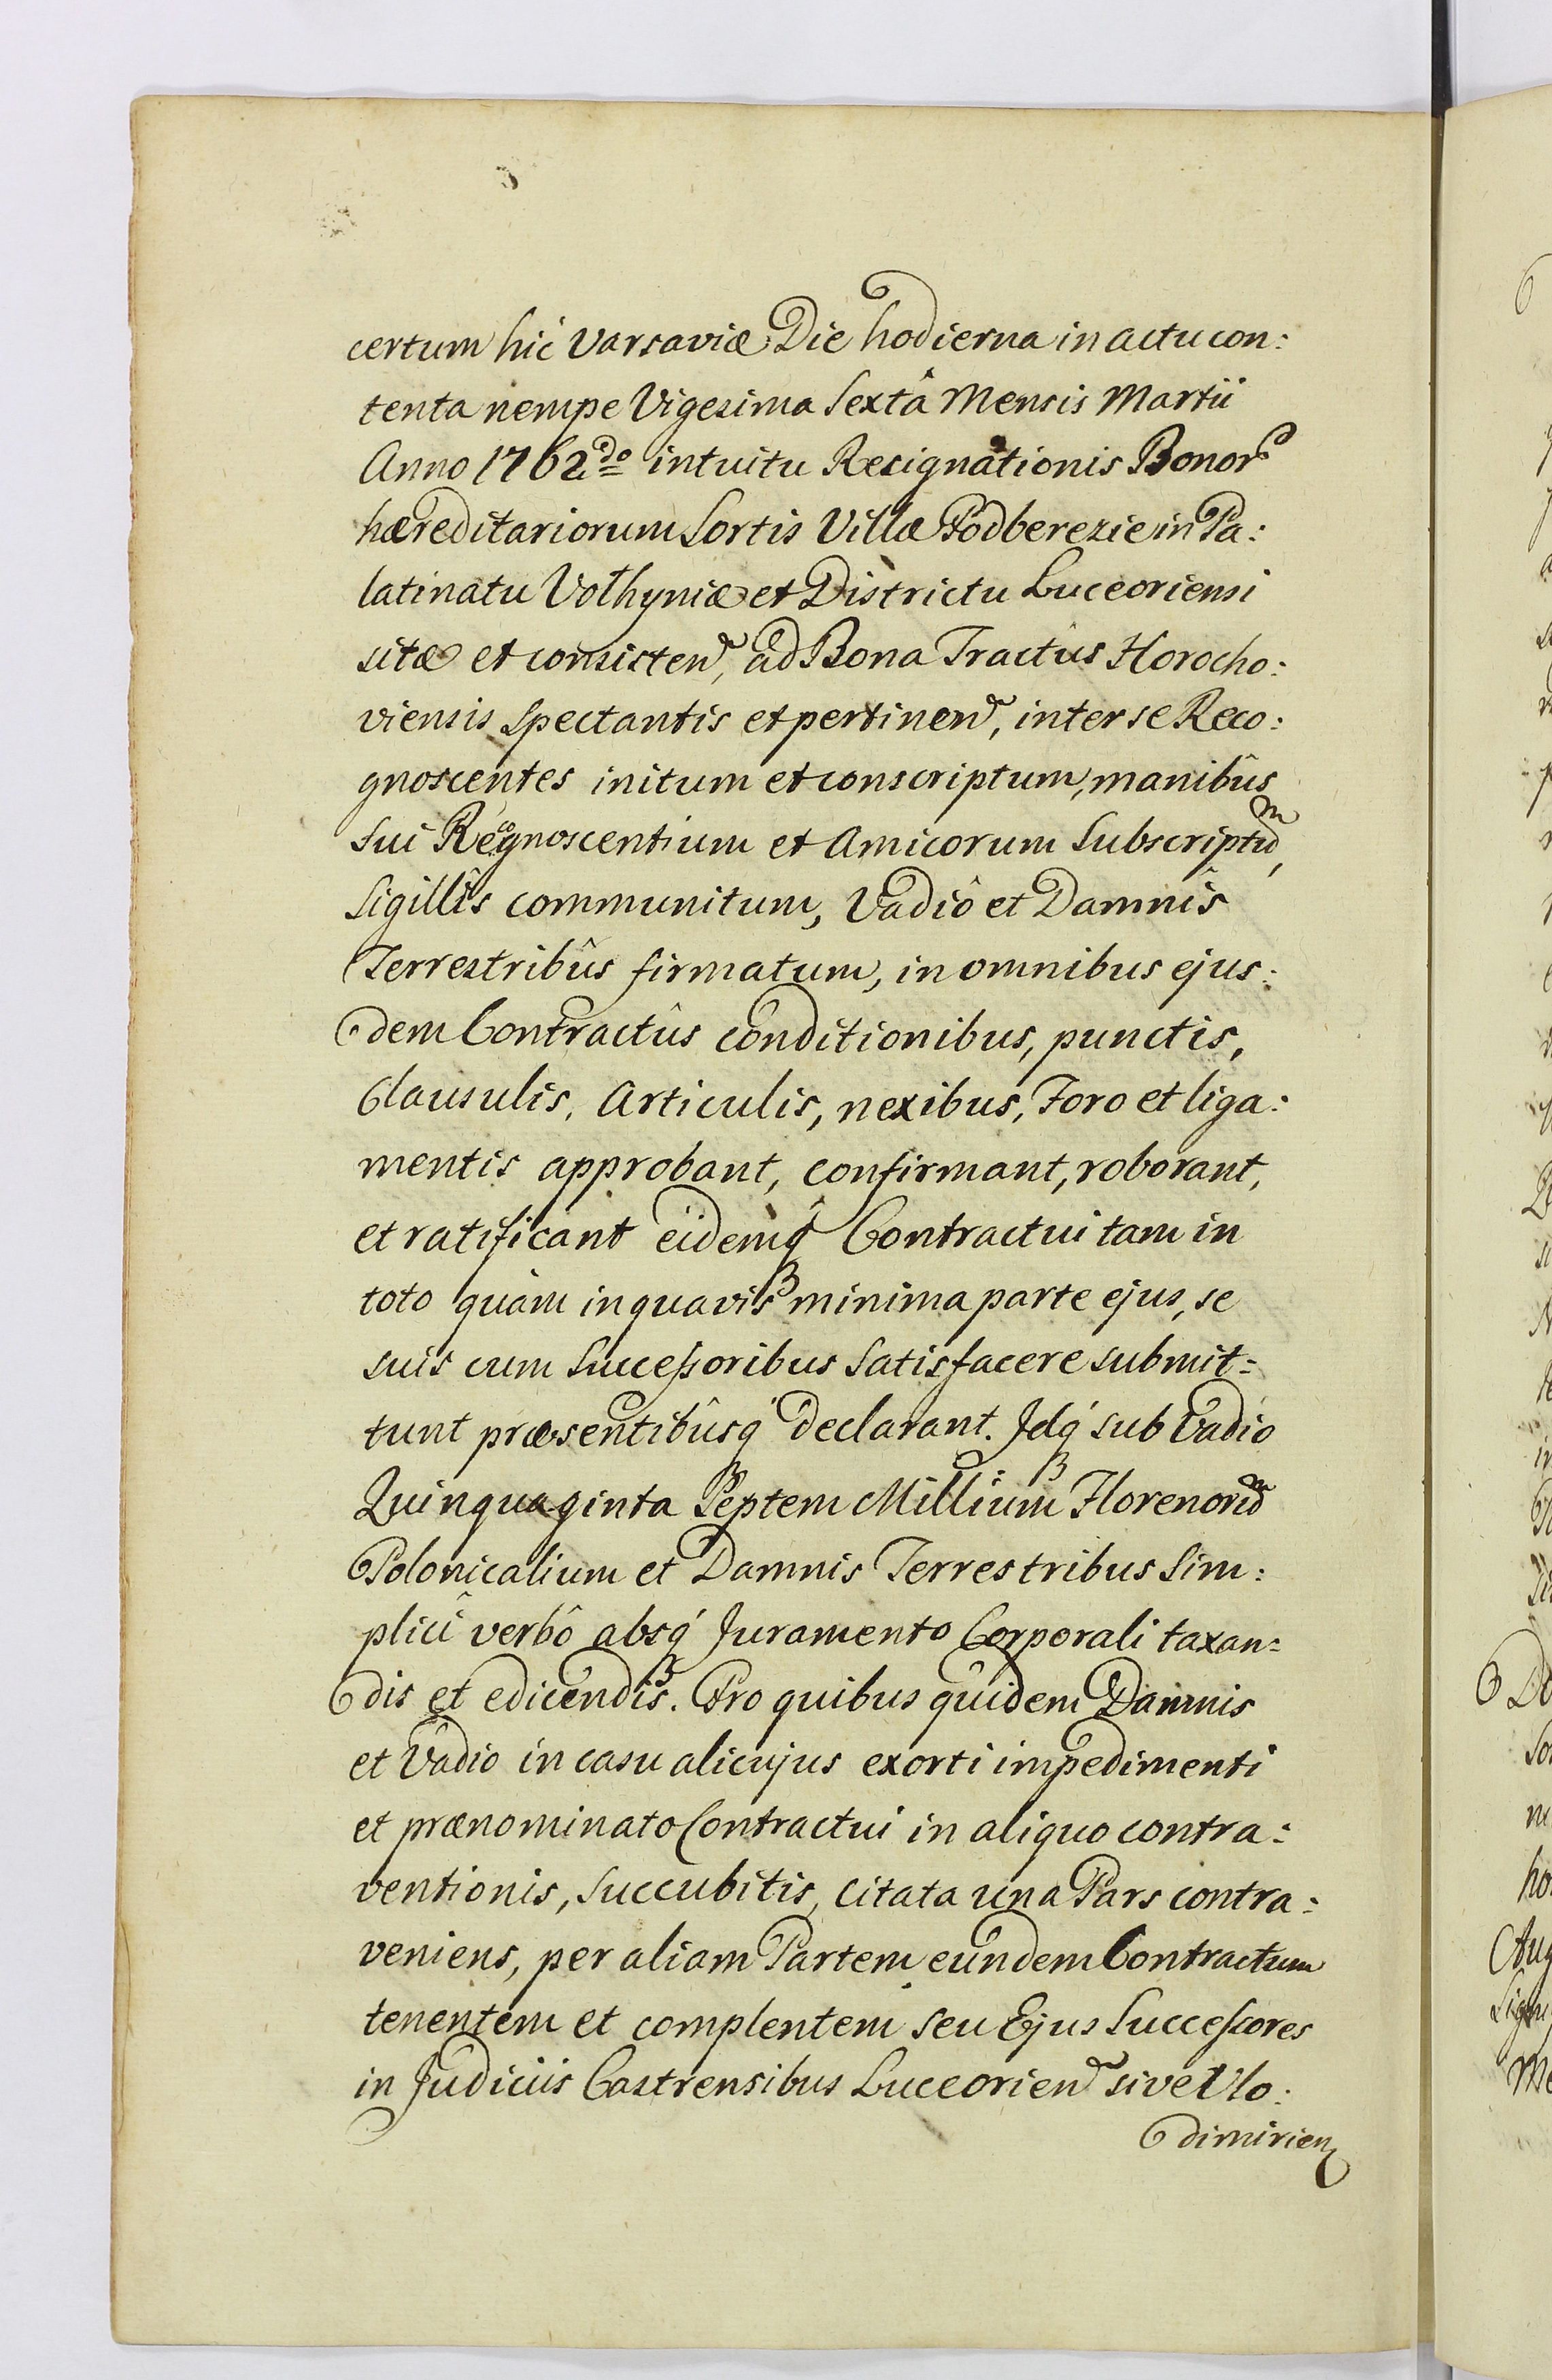 certum hic Varsaviæ Die hodierna in actu con:
tenta nempe Vigesima Sextâ Mensis Martii
Anno 1762do intuitu Resignationis Bonor
hæreditariorum Sortis Villæ Podberezie in Pa:
latinatu Volhyniæ et Districtu Luceoriensi
sitæ et consisten, ad Bona Tractûs Horocho:
viensis spectantis et pertinen, inter se Reco:
gnoscentes initum et conscriptum, manibûs
sui Recognoscentium et Amicorum Subscriptum,
Sigillîs communitum, Vadiô et Damnîs
Terrestribûs firmatum, in omnibus ejus:
dem Contractûs conditionibus, punctis,
Clausulis, Articulis, nexibus, Foro et liga:
mentis approbant, confirmant, roborant,
et ratificant eidemq Contractui tam in
toto quàm in quavis minima parte ejus, se
suis cum Successoribus satisfacere submit:
tunt præsentibûsq declarant. Idq sub Vadio
Quinquaginta Septem Millium Florenorum
Polonicalium et Damnis Terrestribus Sim:
plici verbô absq Juramento Corporali taxan:
dis et edicendis. Pro quibus quidem Damnis
et Vadio in casu alicujus exorti impedimenti
et prænominato Contractui in aliquo contra:
ventionis, succubitis, Citata una Pars contra:
veniens, per aliam Partem eundem Contractum
tenentem et complentem seu Ejus Successores
in Judiciis Castrensibus Luceorien sive Vlo:
dimirien